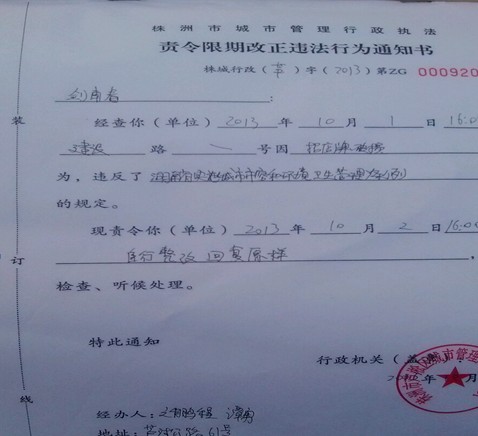 株洲市城市管理行政执法
责令限期改正违法行为通知书
株城行改(芦)字(2013)第ZG 000920
:
装
经查你(单位)2013年10月1日16:0
建设路一号因招店牌破损
为,违反了湖南省实施城市市容和环境卫生管理办法
的规定。
现责令你(单位)2013年10月2日16:0
订
自行整改 回复原样,
检查、听候处理。
特此通知
行政机关(盖章):
城市管理
年 月
线
经办人:
地址: 61号